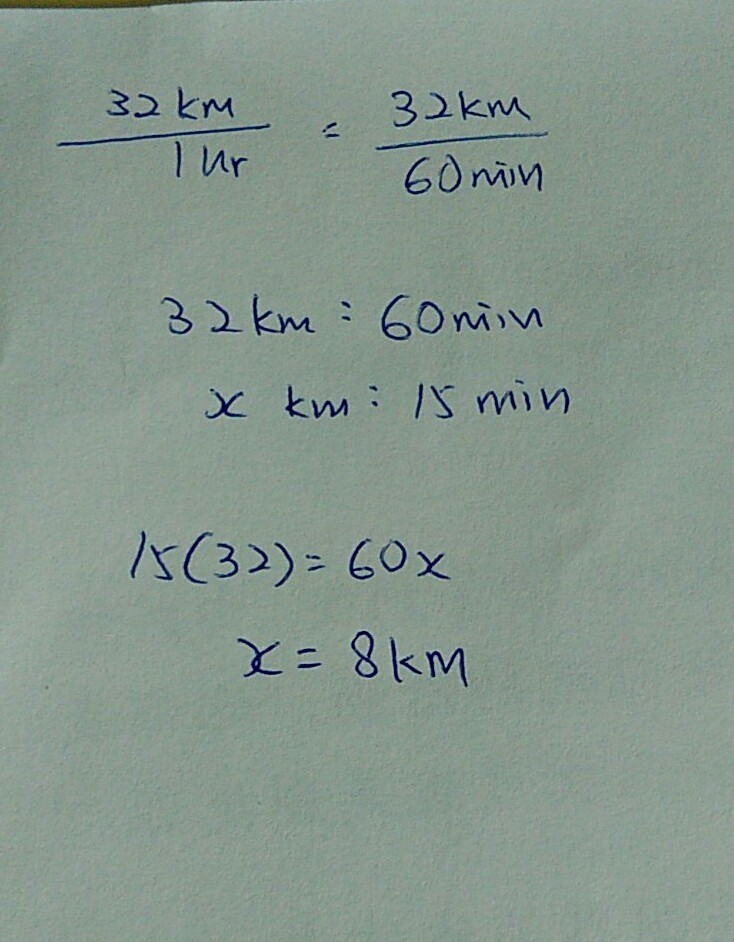 32 km / 1 hr = 32 km / 60 min
32 km : 60 min
x km : 15 min
15(32) = 60x
x = 8 km